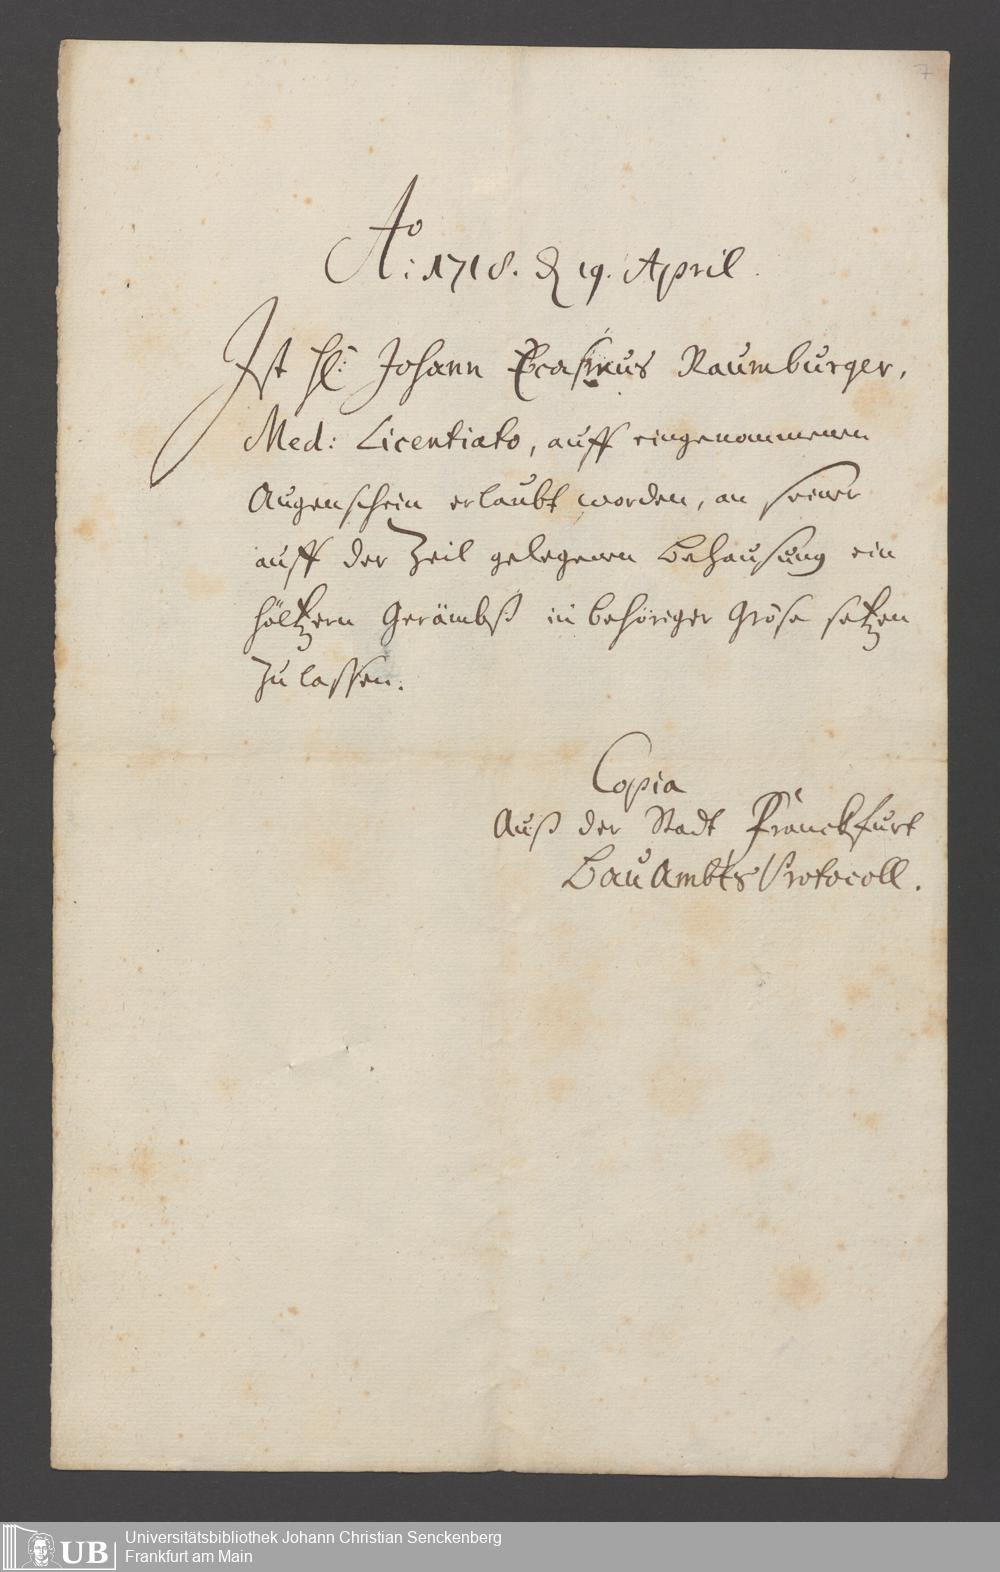 7
Ao: 1718. d 19. April.
Ist hl: Johann Erasmus Naumburger,
Med: Licentiato, auff eingenommenen
Augenschein erlaubt worden, an seiner
auff der Zeil gelegenen Behausung ein
höltzern Gerämbß in behöriger Gröse setzen
zu lassen.
Copia
Auß der Stadt Franckfurt
Bau Ambts Protocoll.
UB
Universitätsbibliothek Johann Christian Senckenberg
Frankfurt am Main